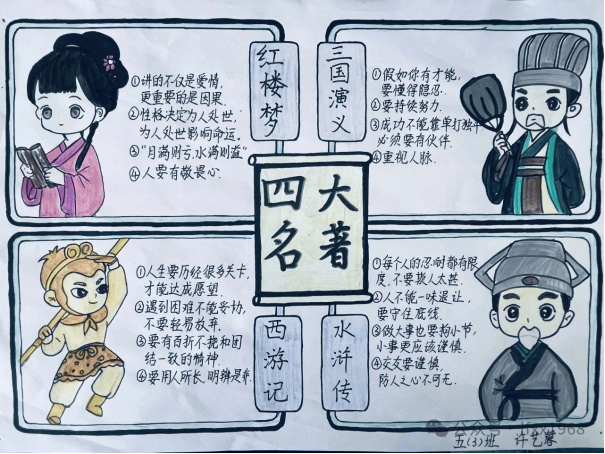 四大名著
红楼梦
①讲的不仅是爱情,
更重要的是因果.
②性格决定为人处世,
为人处世影响命运。
③"月满则亏,水满则溢"
④人要有敬畏心.
三国演义
①假如你有才能,
要懂得隐忍.
②要持续努力.
③成功不能靠单打独斗
必须要有伙伴.
④重视人脉.
西游记
①人生要历经很多关卡,
才能达成愿望.
②遇到困难不能妥协,
不要轻易放弃.
③要有百折不挠和团
结一致的精神.
④要用人所长,明辨是非.
水浒传
①每个人的忍耐都有限
度,不要欺人太甚.
②人不能一味退让,
要守住底线.
③做大事也要拘小节,
小事更应该谨慎.
④交友要谨慎,
防人之心不可无.
公众号
五(3)班 许艺